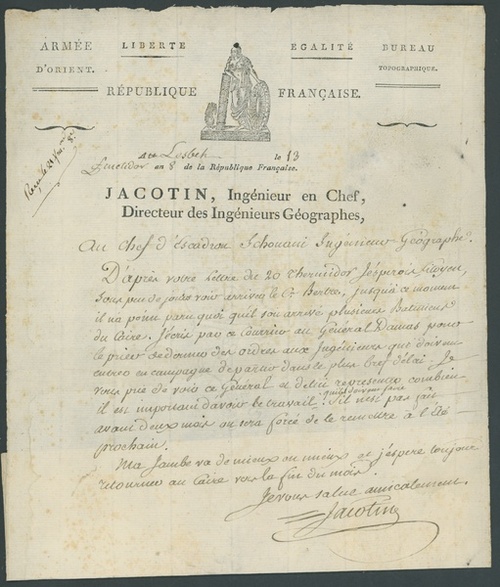 ARMÉE
D'ORIENT.
LIBERTÉ
EGALITÉ
BUREAU
TOPOGRAPHIQUE.
RÉPUBLIQUE FRANÇAISE.
Lesbeh le 13
fructidor an 8 de la République Française.
JACOTIN, Ingénieur en Chef,
Directeur des Ingénieurs Géographes,
Au Chef d'Escadron Schouani Ingénieur Géographe.
D'après votre lettre du 20 thermidor J'espérois Citoyen,
sous peu de jours voir arriver le Cn Bertre, jusqu'à ce moment
il n'a point paru quoi qu'il soit arrivé plusieurs Batiments
du Caire. J'écris par ce Courrier au Général Damas pour
le prier de donner des ordres aux Ingénieurs que doivent
entrer en campagne de partir dans le plus bref délai. Je
vous prie de voir ce Général et de lui représenter combien
il est important d'avoir le travail qu'ils doivent faire S'il n'est pas fait
avant deux mois on sera forcé de le remettre à l'Eté
prochain.
Ma Jambe va de mieux en mieux et j'espère toujours
retourner au Caire vers la fin du mois.
Je vous salue amicalement.
Jacotin